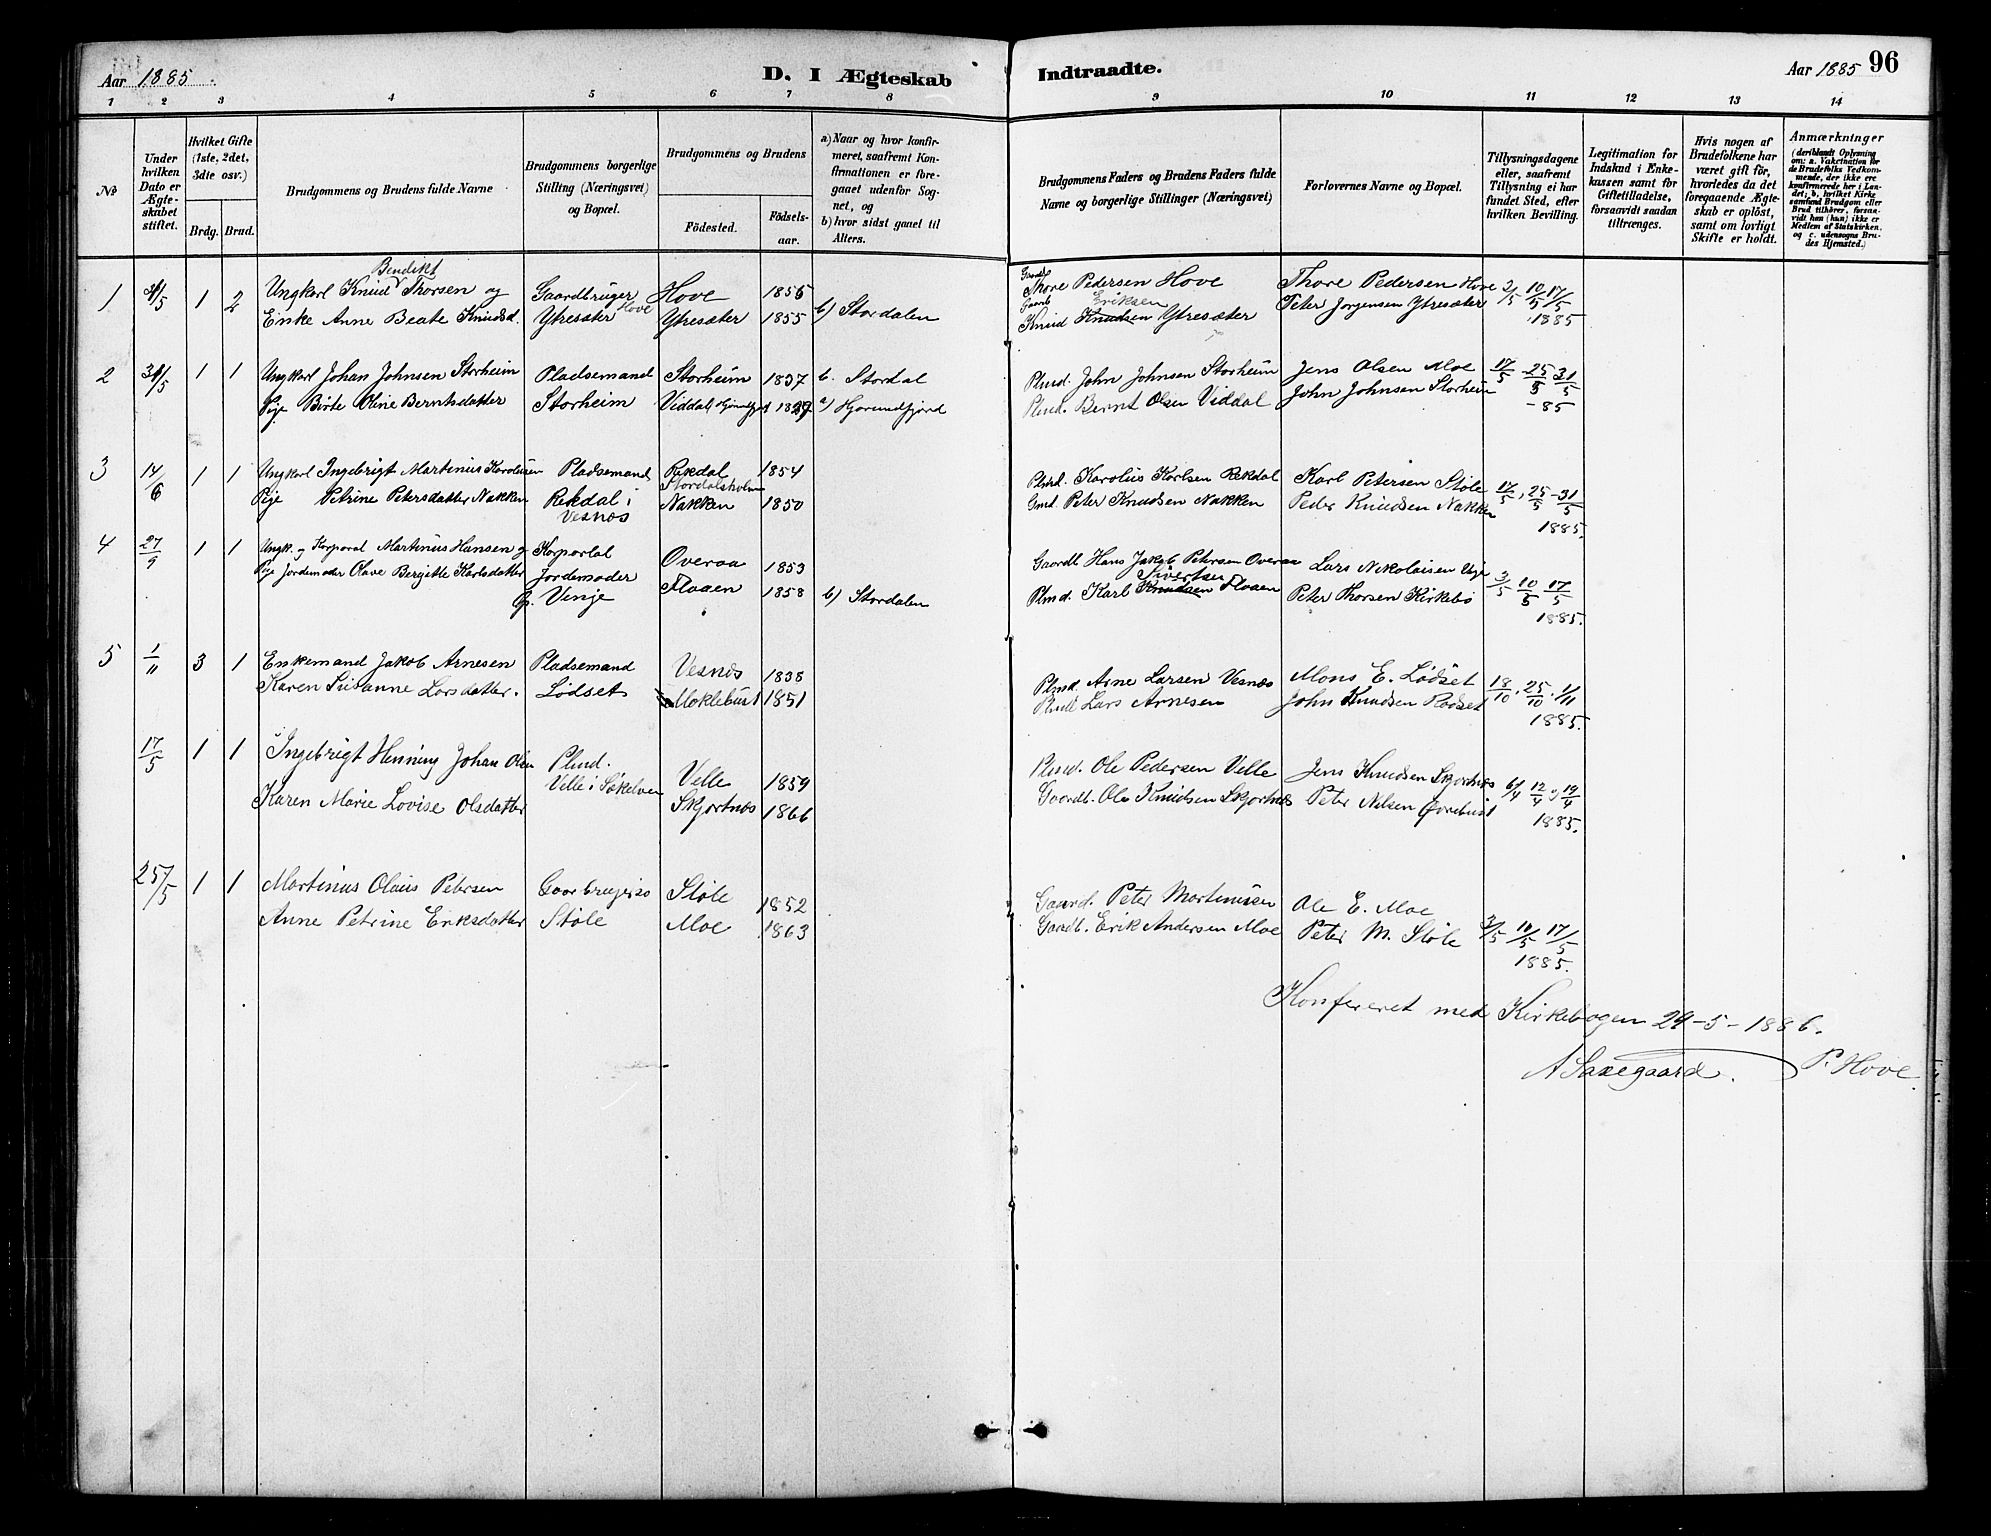 Aar 1885.
D. I Ægteskab
Indtraadte.
Aar 1885
96
1 2 3 4 5 6 7 8
9 10 11 12 13 14
No
Under hvilken Dato er Ægteskabet stiftet.
Hvilket Gifte (1ste, 2det, 3die osv.)
Brdg. Brud.
Brudgommens og Brudens fulde Navne
Brudgommens borgerlige Stilling (Næringsvei) og Bopæl.
Brudgommens og Brudens
Fødested.
Fødselsaar.
a) Naar og hvor konfirmeret, saafremt Konfirmationen er foregaaet udenfor Sognet, og
b) hvor sidst gaaet til Alters.
Brudgommens Faders og Brudens Faders fulde Navne og borgerlige Stillinger (Næringsvei)
Forlovernes Navne og Bopæl.
Tillysningsdagene eller, saafremt Tillysning ei har fundet Sted, efter hvilken Bevilling.
Legitimation for Indskud i Enkekassen samt for Giftetilladelse, forsaavidt saadan tiltrænges.
Hvis nogen af Brudefolkene har været gift før, hvorledes da det foregaaende Ægteskab er opløst, samt om lovligt Skifte er holdt.
Anmærkninger
(deriblandt Oplysning om: a. Vakcination for de Brudefolks Vedkommende, der ikke ere konfirmerede her i Landet; b, hvilket Kirkesamfund Brudgom eller Brud tilhører, forsaavidt han (hun) ikke er Medlem af Statskirken. og c. udensogns Brudes Hjemsted.)
Bendikt
1 31/5 1 2 Ungkarl Knud Thorsen og Gaardbruger Hove Hove 1856
Enke Anne Beate Knudsd. Ytresæter Ytresæter 1855 b) Stordalen
Gaardb. Thore Pedersen Hove Thore Pedersen Hove 3/5 10/5 17/5
Gaardb. Eriksen
Knud Knudsen Ytresæter Peter Jørgensen Ytresæter 1885
2 31/5 1 1 Ungkarl Johan Johnsen Storheim Pladsemand Storheim 1837 b. Stordal
Pige Birte Oline Berntsdatter Storheim Viddal a) Hjørundfjord
Plmd. John Johnsen Storheim Jens Olsen Moe 17/5 25/5 31/5
Plmd. Bernt Olsen Viddal John Johnsen Storheim -85
3 14/6 1 1 Ungkarl Ingebrigt Martinus Karolusen Pladsemand Rekdal 1854
Stordalsholm
Pige Petrine Petersdatter Nakken Rekdal i Vesnos Nakken 1850
Plmd. Karolus Karlsen Rekdal Karl Petersen Støle 17/5, 25/5 - 31/5
Gmd. Peter Knudsen Nakken Peder Knudsen Nakken 1885.
4 27/9 1 1 Ungk. og Korporal Martinus Hansen og Korporlal Overaa 1853
Pige Jordemoder Olave Bergitte Karlsdatter Jordemoder Floaen 1858 b) Stordalen
Gp. Venje
Gaardb Hans Jakob Petersen Overaa Lars Nikolaisen Uje 3/5 10/5 17/5
Sivertsen
Plmd. Karl Knudsen Floaen Peter Thorsen Kirkebø 1885.
5 1/11 3 1 Enkemand Jakob Arnesen Pladsemand Vesnos 1838
Karen Susanne Larsdatter. Lødset Moklebust 1851
Plmd. Arne Larsen Vesnæs Mons E. Lødset 18/10, 25/10, 1/11
Plmd Lars Arnesen John Knudsen Rødset 1885.
17/5 1 1 Ingebrigt Henning Johan Olsen Plmd. Velle 1859
Karen Marie Lovise Olsdatter Velle i Søkelven Skjortnos 1866
Plmd. Ole Pedersen Velle Jens Knudsen Skjortnæs 6/4 12/4 og 19/4
Gaardb. Ole Knudsen Skjortnæs Peter Nilsen Ørrebust 1885.
25/5 1 1 Martinus Olaus Petersen Støle 1852
Anne Petrine Eriksdatter Støle Moe 1863
Gaard. Peter Martinussen Ole E. Moe
Gaardb. Erik Andersen Moe Peter M. Støle 3/5 10/5 17/5
1885.
Konfereret med Kirkebogen 29-5-1886.
A Saxegaard. P. Hove.